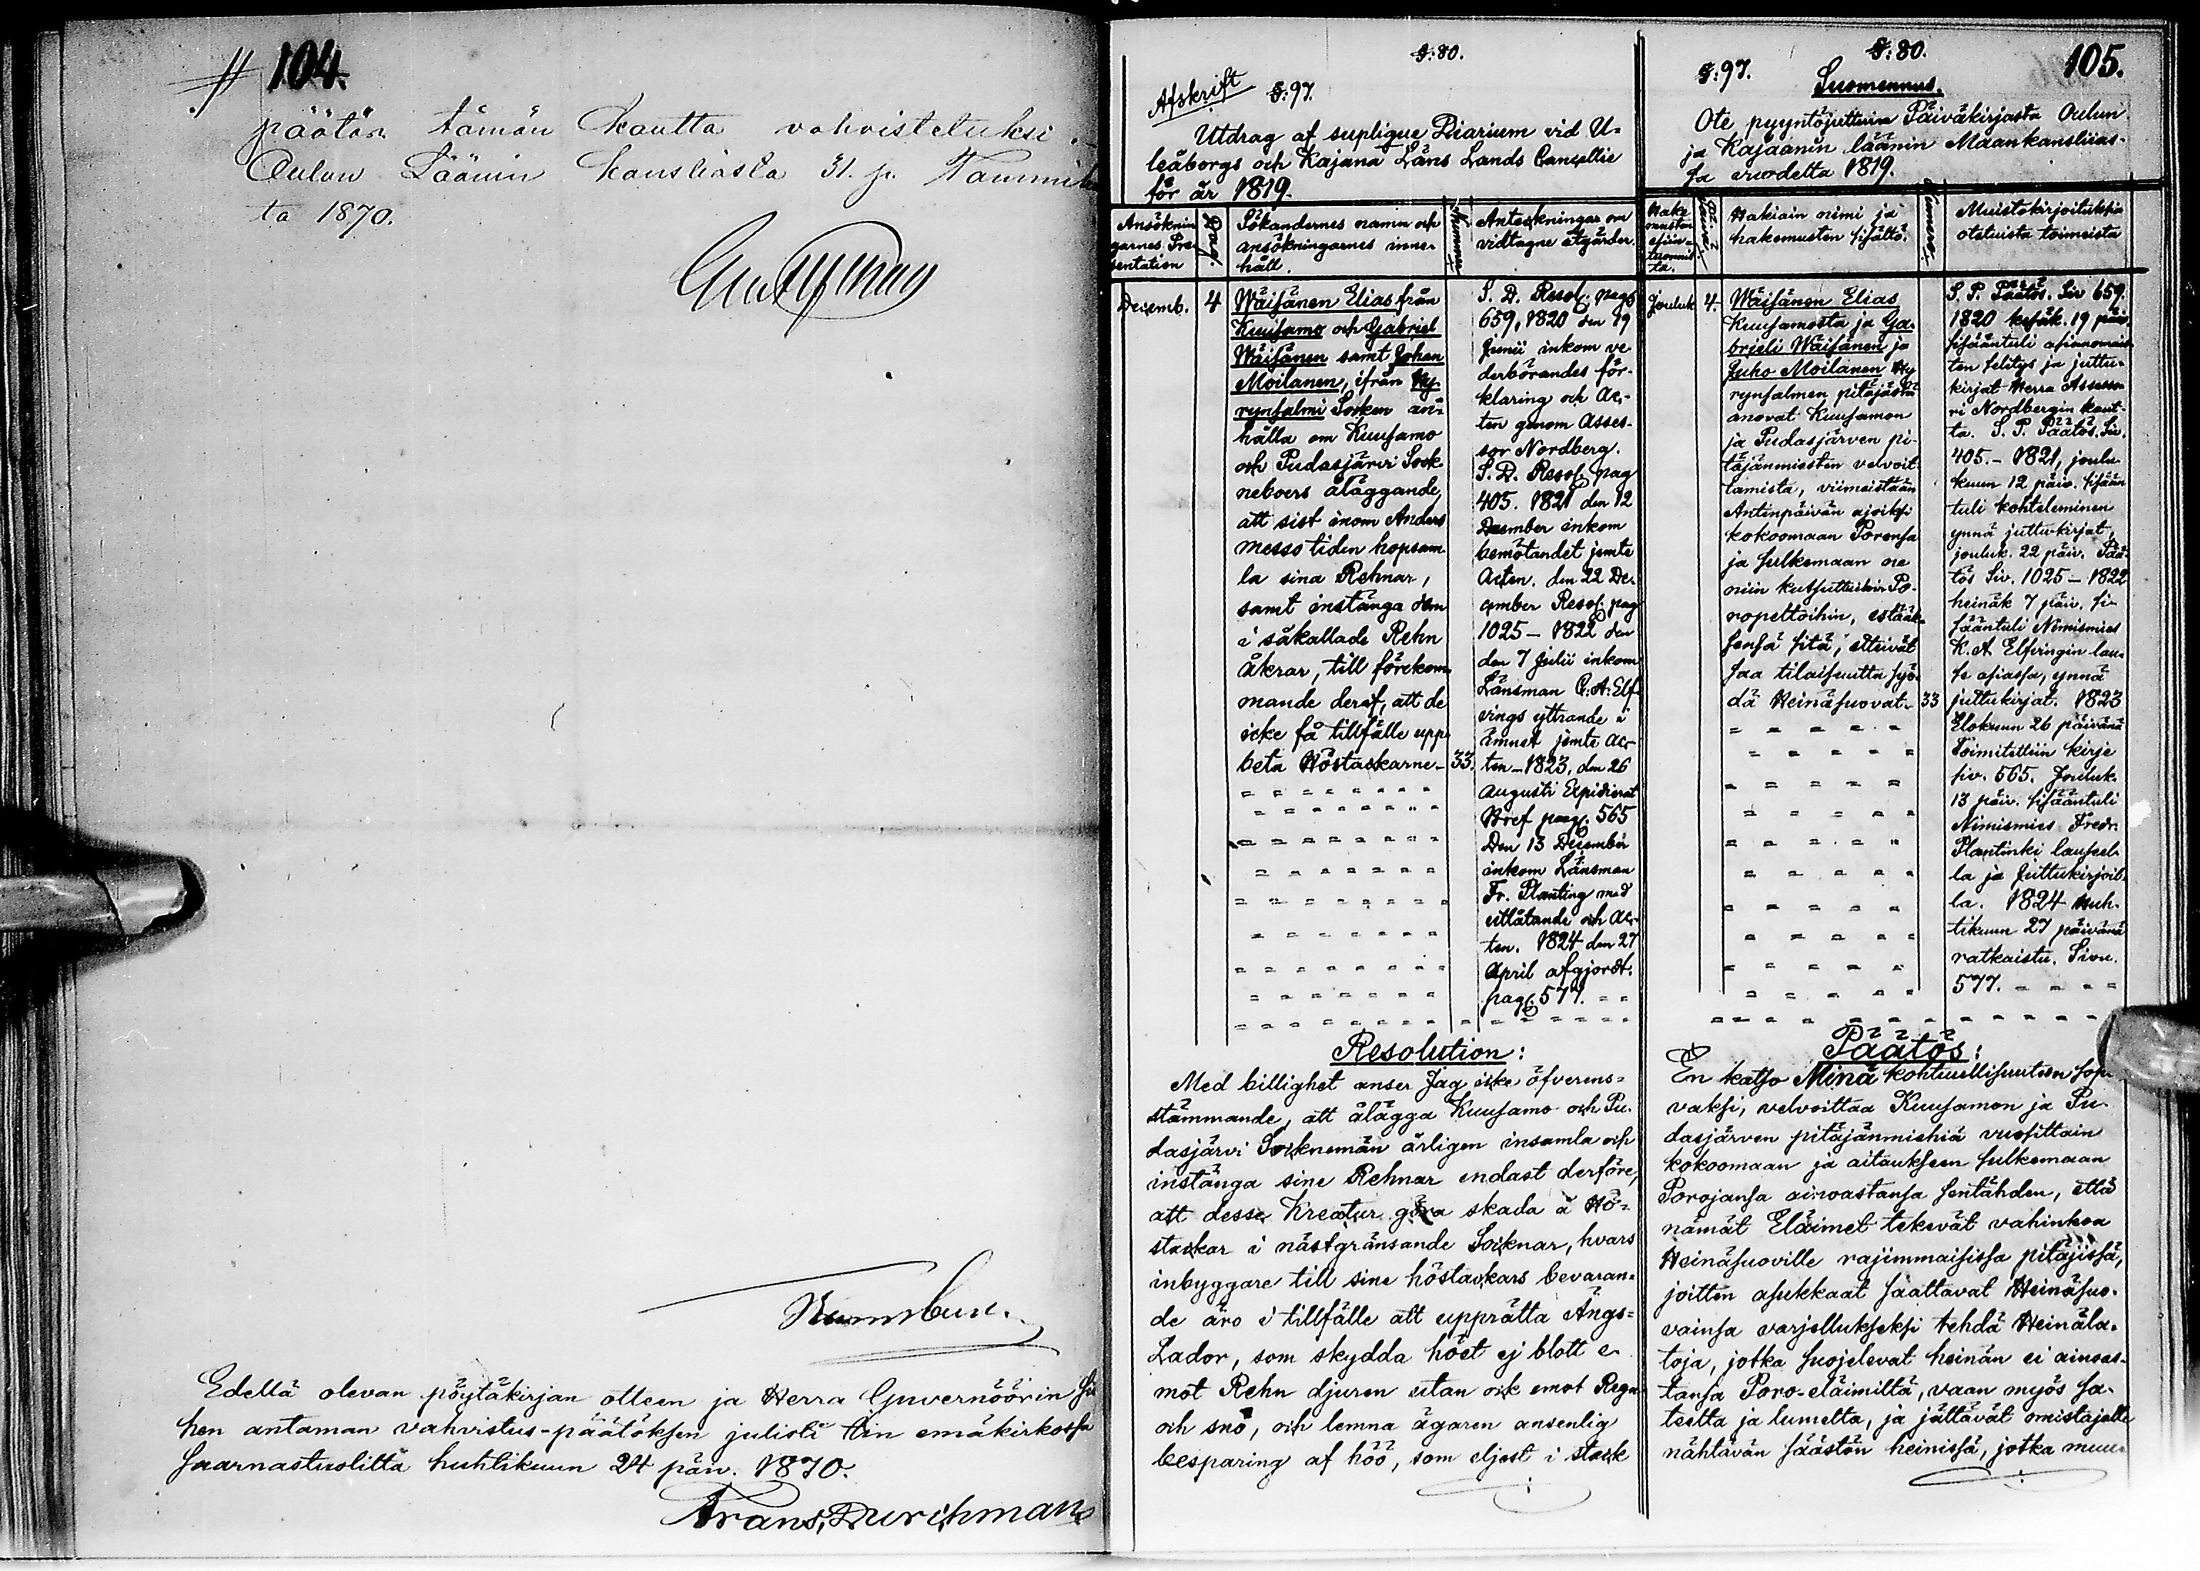 104.
päätän tämän kautta vahvistetuksi.
Oulun Läänin kansliasta 31. p. Tammiku
ta 1870.
Edellä olevan pöytäkirjan olleen ja Herra Guvernöörin sii
hen antaman vahvistus-päätöksen julisti tin emäkirkossa
saarnastuolilta huhtikuun 24 päiv. 1870.
Frans Durchman
§: 80.
Afskrift §: 97.
Utdrag af suplique Diarium vid U=
leåborgs och Kajana Läns Lands Cancellie
för år 1819.
Ansöknin
garnes Pre
sentation
Dag.
Sökandernes namn och
ansökningarnes inne=
håll.
Nummer
Anteckningar om
vidtagne åtgärder.
Decemb. 4
Wäisänen Elias från
Kuusamo och Gabriel
Wäisänen samt Johan
Moilanen, ifrån Hy-
rynsalmi Socken an=
hålla om Kuusamo
och Pudasjärvi Sock
neboers åläggande,
att sist inom Anders
messo tiden hopsam
la sina Rehnar,
samt instänga dem
i såkallade Rehn
åkrar, till förekom
mande deraf, att de
icke få tillfälle upp
beta Höstackarne - 33.
S. D. Resol. pag.
659, 1820 den 19
Junii inkom ve
derbörandes för-
klaring och Ac-
ten genom Asses-
sor Nordberg.
S. D. Resol. pag
405. 1821 den 12
December inkom
bemötandet jemte
Acten. den 22 De-
cember Resol. pag
1025 - 1822 den
den 7 Julii inkom
Länsman C: A: Elf-
vings yttrande i
ämnet jemte Ac-
ten - 1823, den 26
Augusti Expidierat
Bref pag. 565
Den 13 December
inkom Länsman
Fr. Planting med
utlåtande och Ac-
ten. 1824 den 27
April afgjordt.
pag. 577.
Resolution:
Med billighet anser Jag icke öfverens=
stämmande, att ålägga Kuusamo och Pu-
dasjärvi Socknemän årligen insamla och
instänga sine Rehnar endast derföre,
att desse Kreatur göra skada å Hö=
stackar i nästgränsande Socknar, hvars
inbyggare till sine höstackars bevaran=
de äro i tillfälle att upprätta Ängs=
Lador, som skydda höet ej blott e-
mot Rehn djuren utan ock emot Regn
och snö, och lemna ägaren ansenlig
besparing af höö, som eljest i stack
§: 97. §: 80. 105.
Suomennus.
Ote pyyntöjuttuin Päiväkirjasta Oulun
ja Kajaanin läänin Maankansliias-
sa vuodelta 1819.
Hakiain nimi ja
hakemusten sisältö.
Nummer.
Muistokirjoituksia
otetuista toimeista
Jouluk 4.
Wäisänen Elias
Kuusamosta ja Ga-
brjeli Wäisänen ja
Juho Moilanen Hy
rynsalmen pitäjästä
anovat Kuusamon
ja Pudasjärven pi-
täjänmiesten velvoit
tamista, viimeistään
Antinpäivän ajoiksi
kokoomaan Poronsa
ja sulkemaan ne
niin kutsuttuihin Po-
ropeltoihin, estääk-
sensä sitä, etteivät
saa tilaisuutta syö-
dä Heinäsuovat. 33
S. P. Päätös. Siv 659.
1820 kesäk. 19 päiv.
sisääntuli asianomais
ten selitys ja juttu-
kirjat Herra Assesso-
ri Nordbergin kaut-
ta. S. P. Päätös. Siv.
405. - 1821, joulu-
kuun 12 päiv. sisään
tuli kohteleminen
ynnä juttukirjat,
jouluk. 22 päiv. Pää-
tös Siv. 1025 - 1822
heinäk 7 päiv. si-
sääntuli Nimismies
K. A Elfvingin lau-
se asiassa, ynnä
juttukirjat. 1823
Elokuun 26 päivänä
Toimitettiin kirje
siv. 565. Jouluk.
13 päiv. sisääntuli
Nimismies Fredr.
Plantinki lausel-
la ja juttukirjoil-
la. 1824 Huh-
tikuun 27 päivänä
ratkaistu. Sivu.
577.
Päätös:
En katso Minä kohtuullisuuteen sopi-
vaksi, velvoittaa Kuusamon ja Pu-
dasjärven pitäjänmiehiä vuosittain
kokoomaan ja aitaukseen sulkemaan
Porojansa ainoastansa sentähden, että
nämät Eläimet tekevät vahinkoa
Heinäsuoville rajimmaisissa pitäjissä,
joitten asukkaat saattavat Heinäsuo-
vainsa varjelluksksi tehdä Heinäla-
toja, jotka suojelevat heinän ei ainoas-
tansa Poro-eläimiltä, vaan myös sa-
teelta ja lumelta, ja jättävät omistajalle
nähtävän säästön heinissä, jotka muu-